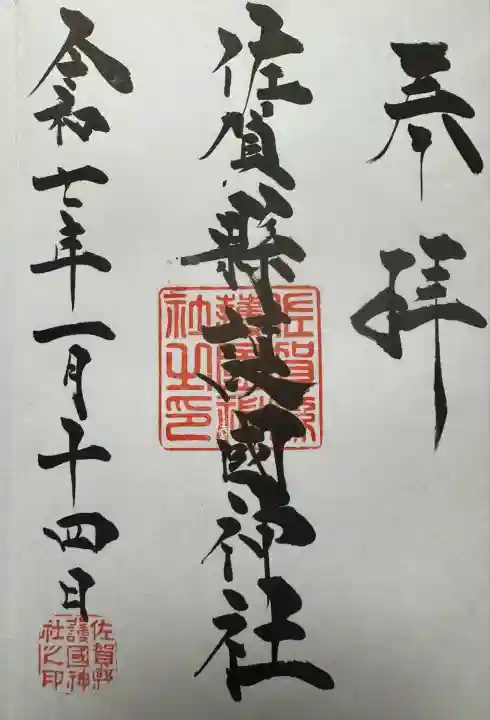 奉拝
佐賀縣護國神社
佐賀縣護國神社之印
令和七年一月十四日
佐賀縣護國神社之印